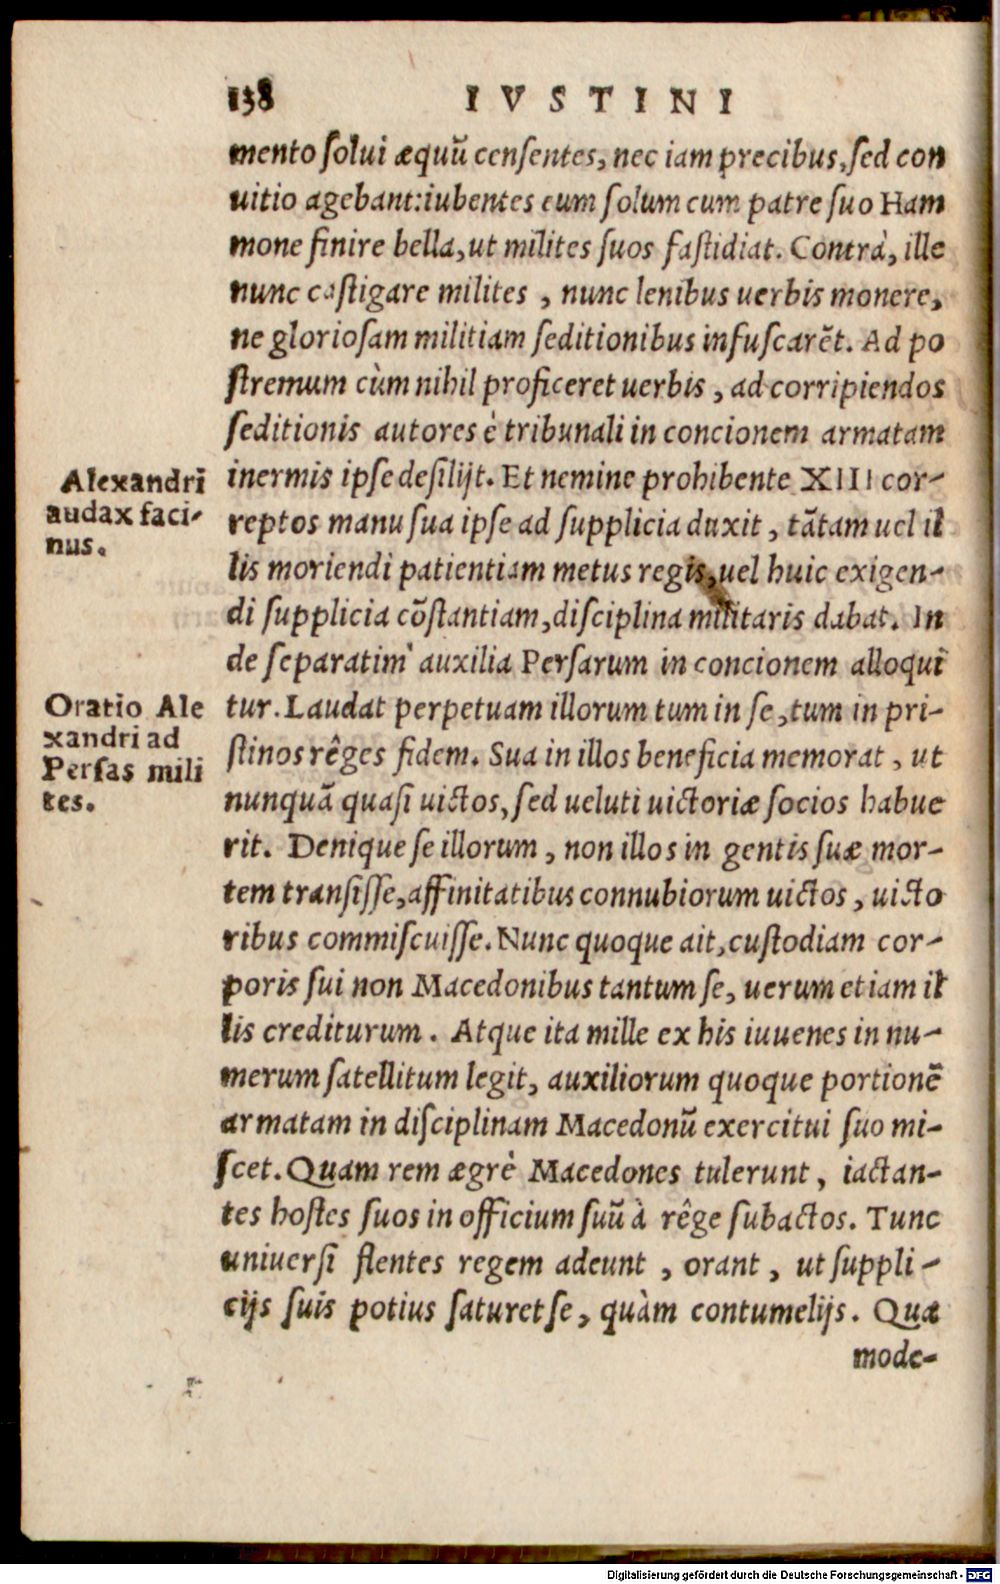 138 IVSTINI
mento solui æquū censentes, nec iam precibus, sed con
uitio agebant: iubentes eum solum cum patre suo Ham
mone finire bella, ut milites suos fastidiat. Contrà, ille
nunc castigare milites, nunc lenibus uerbis monere,
ne gloriosam militiam seditionibus infuscarēt. Ad po
stremum cùm nihil proficeret uerbis, ad corripiendos
seditionis autores è tribunali in concionem armatam
inermis ipse desilijt. Et nemine prohibente XIII cor-
reptos manu sua ipse ad supplicia duxit, tātam uel il
lis moriendi patientiam metus regis, uel huic exigen-
di supplicia cōstantiam, disciplina militaris dabat. In
de separatim auxilia Persarum in concionem alloqui
tur. Laudat perpetuam illorum tum in se, tum in pri-
stinos rêges fidem. Sua in illos beneficia memorat, ut
nunquā quasi uictos, sed ueluti uictoriæ socios habue
rit. Denique se illorum, non illos in gentis suæ mor-
tem transisse, affinitatibus connubiorum uictos, uicto
ribus commiscuisse. Nunc quoque ait, custodiam cor-
poris sui non Macedonibus tantum se, uerum etiam il
lis crediturum. Atque ita mille ex his iuuenes in nu-
merum satellitum legit, auxiliorum quoque portionē
armatam in disciplinam Macedonū exercitui suo mi-
scet. Quam rem ægrè Macedones tulerunt, iactan-
tes hostes suos in officium suū à rêge subactos. Tunc
uniuersi flentes regem adeunt, orant, ut suppli-
cijs suis potius saturet se, quàm contumelijs. Quæ
mode-
Alexandri
audax faci-
nus.
Oratio Ale
xandri ad
Persas mili
tes.
Digitalisierung gefördert durch die Deutsche Forschungsgemeinschaft - DFG